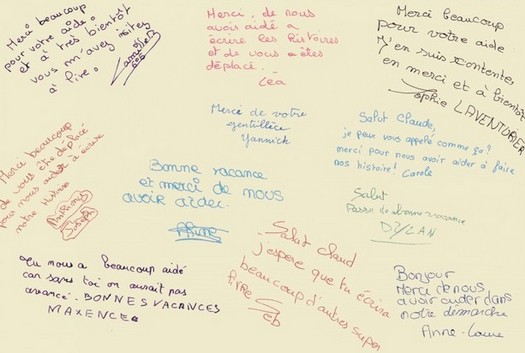 Merci beaucoup
pour votre aide
et à très bientôt
vous m'avez initez
à lire!
Merci, de nous
avoir aidé a
écrire les histoires
et de vous êtes
déplacé.
Léa
Merci beaucoup
pour votre aide
J'en suis contente,
en merci et à bientôt
Sophie LAVENTURIER
Merci de votre
gentillèce
Yannick
Salut Claude,
je peux vous appelé comme ça?
merci pour nous avoir aider à faire
nos histoire! Carole
Merci beaucoup
de vous être déplacé
pour nous aider a
notre histoire
Joseph
Bonne vacance
et merci de nous
avoir aider.
Salut
Passe de bonne vacance
DYLAN
Tu nous a beaucoup aidé
car sans toi on aurait pas
avancé. BONNES VACANCES
MAXENCE
Salut Claud
j'espere que tu écrira
beaucoup d'autres super
livre Seb
Bonjour
Merci de nous
avoir aider dans
notre démarche
Anne-Laure